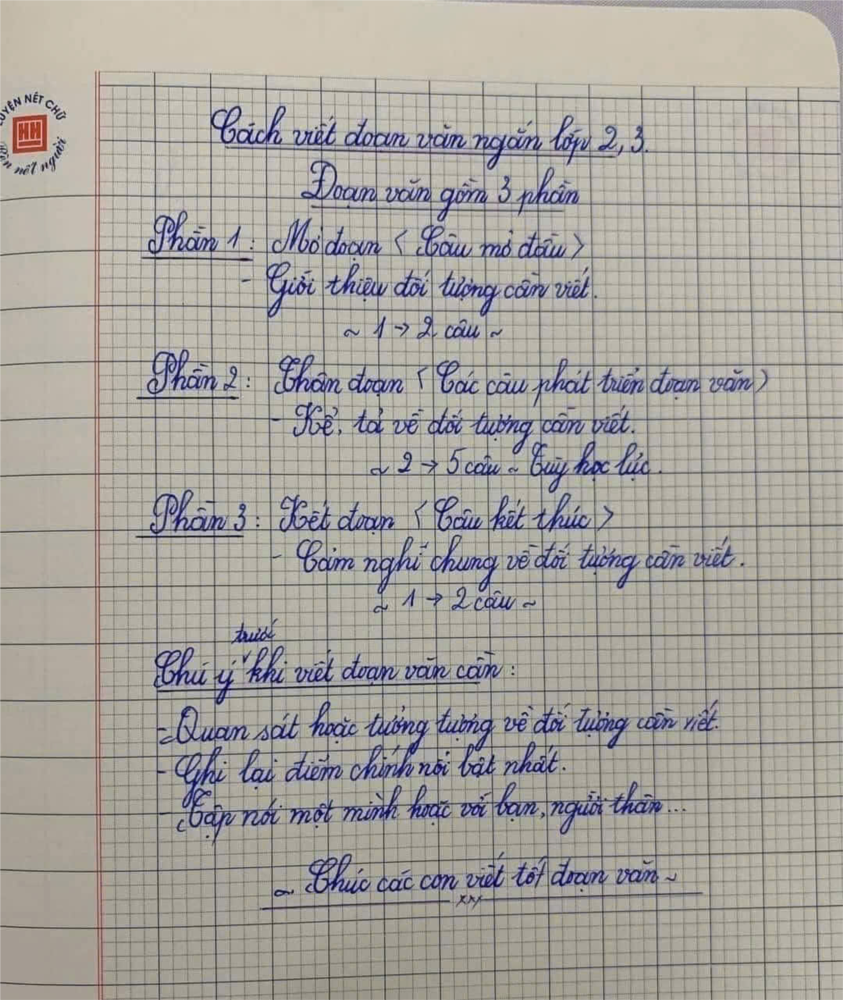 LUYỆN NÉT CHỮ
HH
Rèn nết người
Cách viết đoạn văn ngắn lớp 2, 3.
Đoạn văn gồm 3 phần
Phần 1 : Mở đoạn < Câu mở đầu >
- Giới thiệu đối tượng cần viết.
~ 1 → 2 câu ~
Phần 2 : Thân đoạn < Các câu phát triển đoạn văn >
- Kể, tả về đối tượng cần viết.
~ 2 → 5 câu ~ Tuỳ học lực.
Phần 3 : Kết đoạn < Câu kết thúc >
- Cảm nghĩ chung về đối tượng cần viết.
~ 1 → 2 câu ~
trước
Chú ý ˅ khi viết đoạn văn cần :
- Quan sát hoặc tưởng tượng về đối tượng cần viết.
- Ghi lại điểm chính nổi bật nhất.
- Tập nói một mình hoặc với bạn, người thân...
~ Chúc các con viết tốt đoạn văn ~
xxx